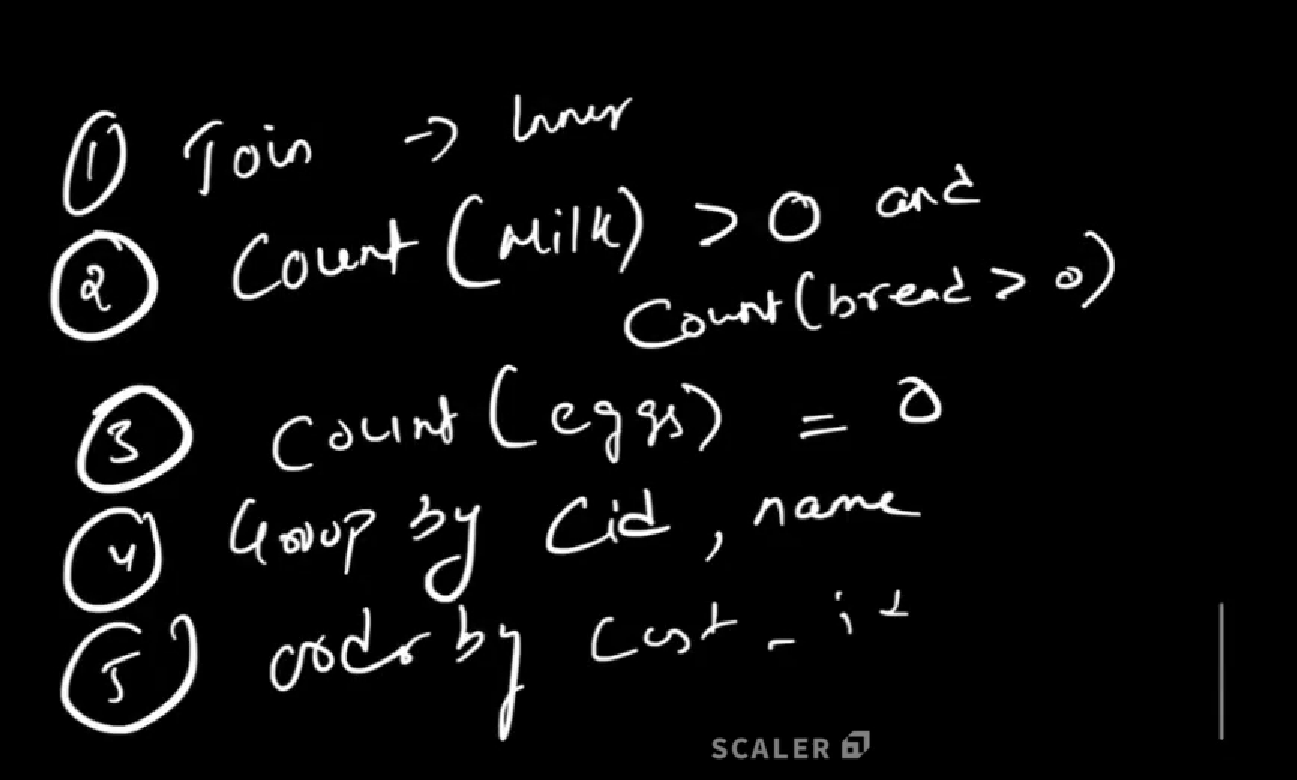 ① Join → Inner
② Count (Milk) > 0 and
Count (bread > 0)
③ Count (eggs) = 0
④ Group by Cid, name
⑤ order by Cust_id
SCALER